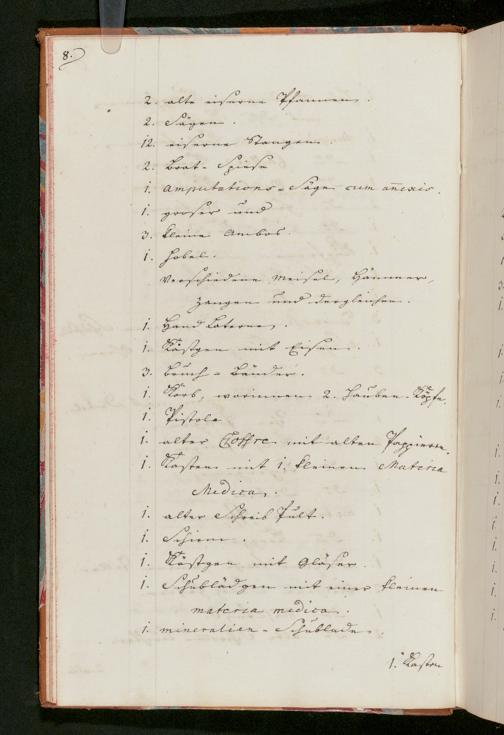 8.
2. alte eiserne Pfannen.
2. Sägen.
12. eiserne Stangen.
2. Brat-Spiese
1. Amputations-Säge cum annexis.
1. groser und
3. kleine Ambos.
1. Hobel.
Verschiedene Meisel, Hämmer,
Zangen und dergleichen.
1. Hand Laterne.
1. Kästgen mit Eisen.
3. Bruch-Bänder.
1. Korb, worinnen 2. Hauben-Köpfe.
1. Pistole.
1. alter Coffre mit alten Pappieren.
1. Kasten mit 1. kleinen Materia
Medica.
1. alter Schreib Pult.
1. Schirm.
1. Kästgen mit Gläser.
1. Schublädgen mit einer kleinen
materia medica.
1. mineralien-Schublade.
1. Kasten